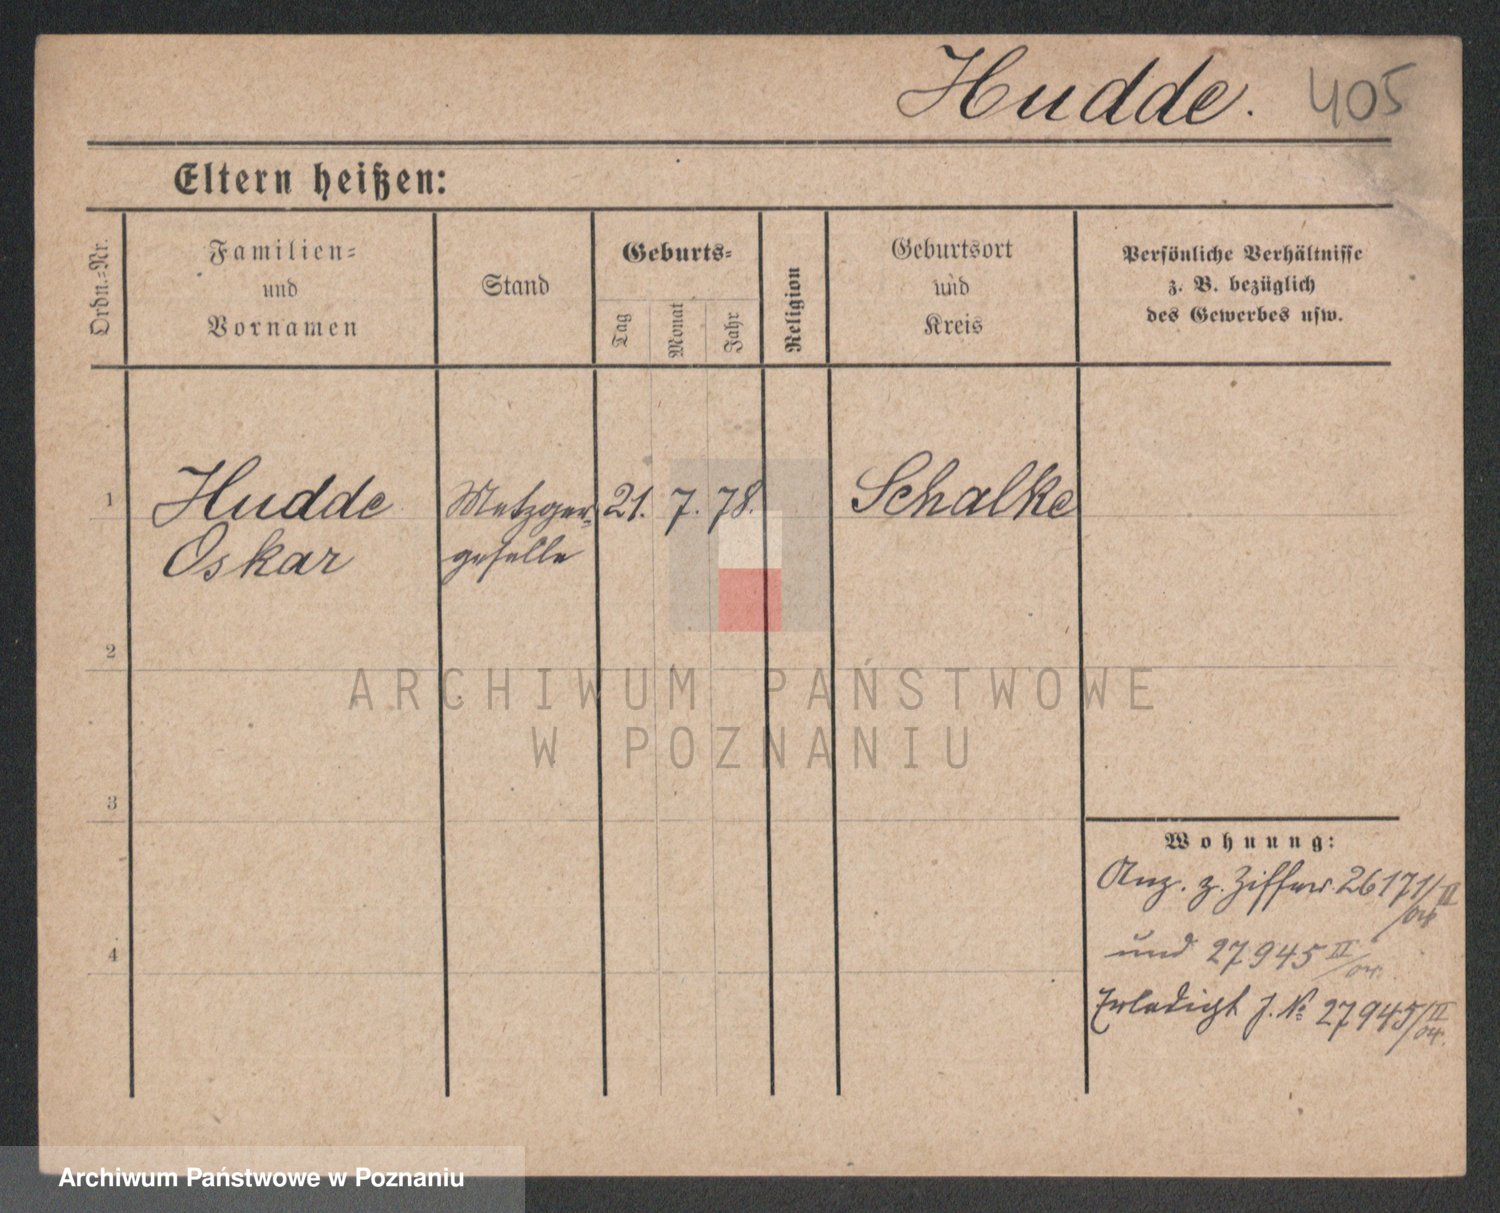 Hudde. 405
Eltern heißen:
Ordn.=Nr.
Familien=
und
Vornamen
Stand
Geburts=
Tag
Monat
Jahr
Religion
Geburtsort
und
Kreis
Persönliche Verhältnisse
z. B. bezüglich
des Gewerbes usw.
1 Hudde Metzger= 21. 7. 78. Schalke
Oskar geselle
2
ARCHIWUM PAŃSTWOWE
W POZNANIU
3
Wohnung:
Anz. z. Ziffer 26171/II
/04
4 und 27945 II/04.
Erledigt J. № 27945/II
/04.
Archiwum Państwowe w Poznaniu